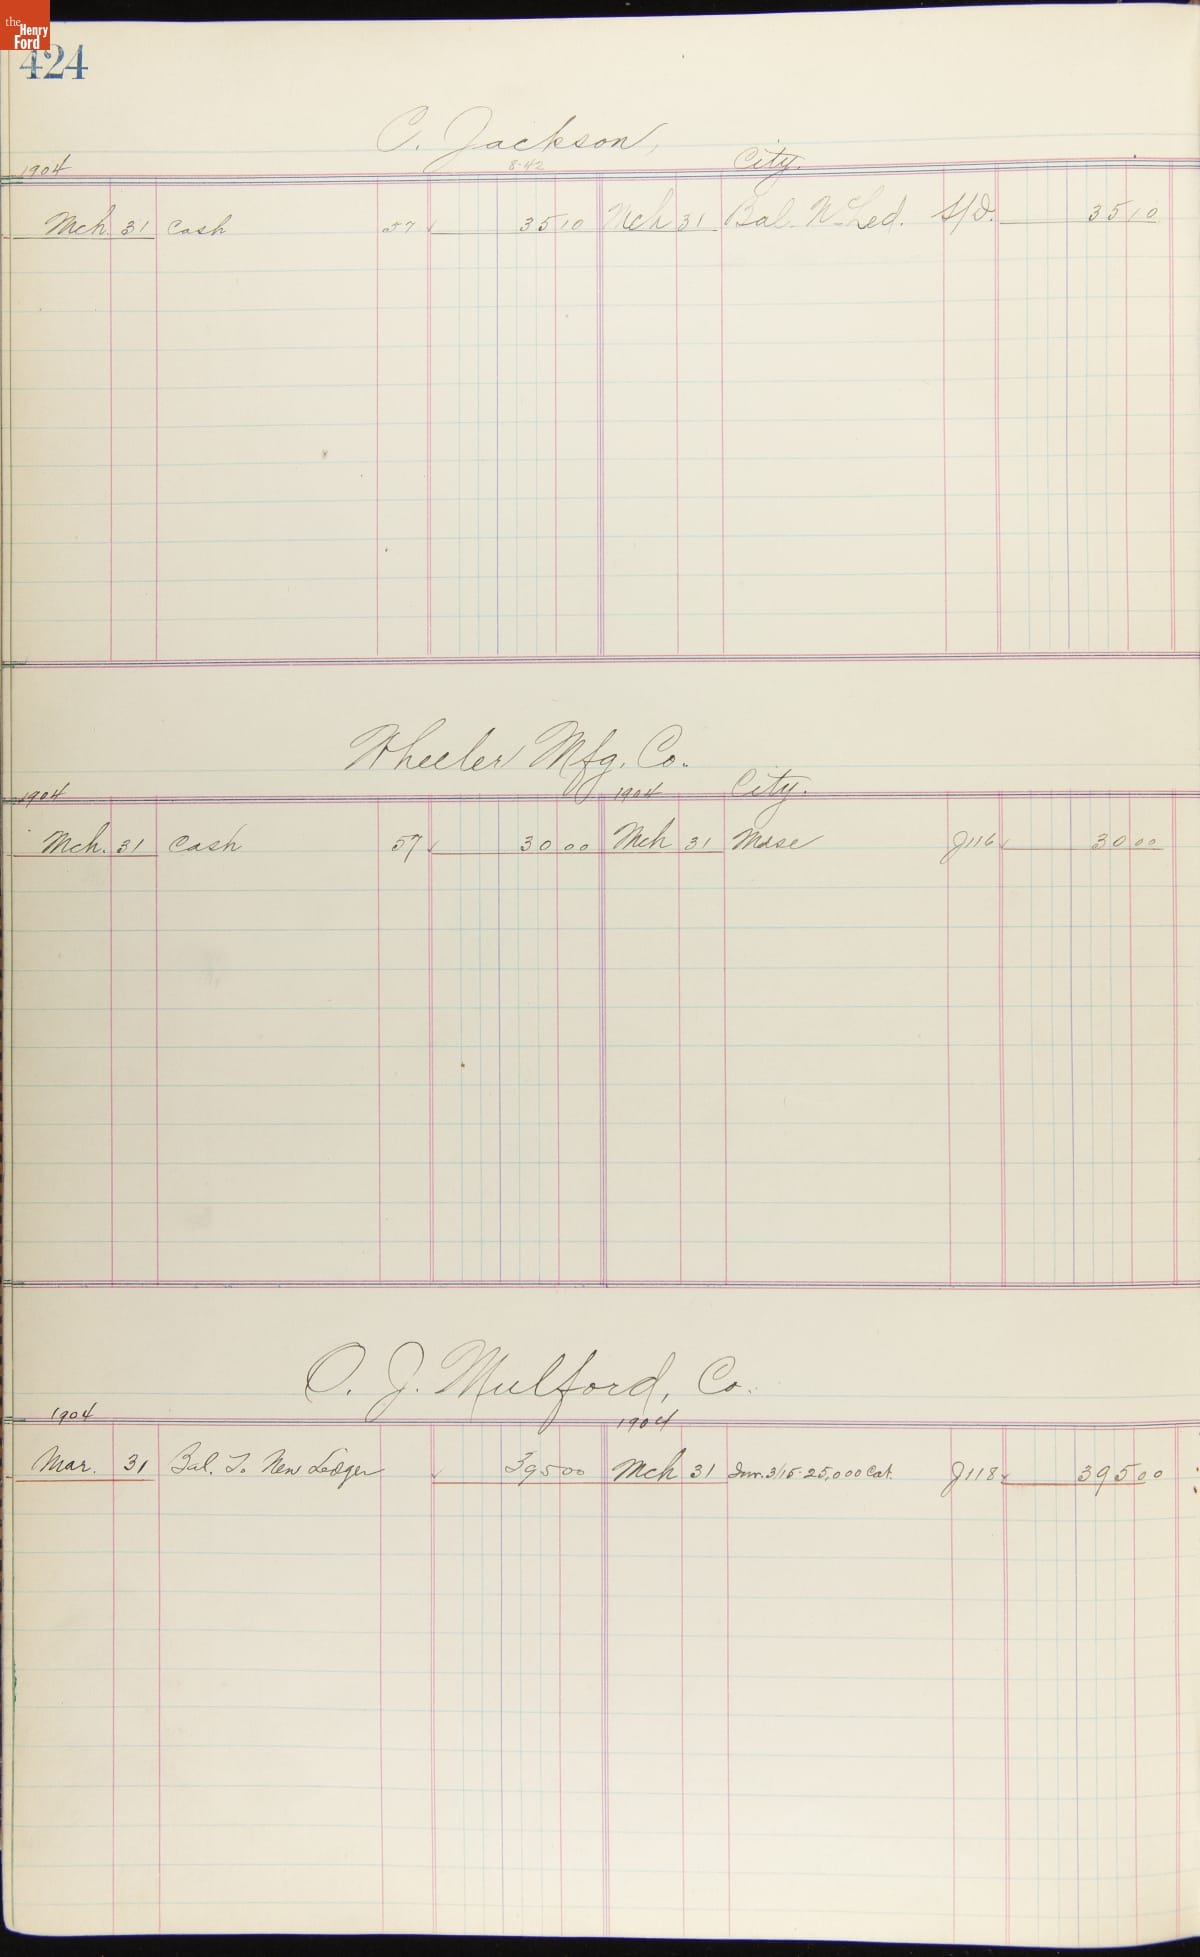 the Henry Ford
424
C. Jackson,
8-42
City.
1904
Mch. 31 Cash 57 ✓ 35 10 Mch 31 Bal. Led. 35 10
Wheeler Mfg. Co.
City.
1904 1904
Mch. 31 Cash 57 ✓ 30 00 Mch 31 Mdse J116 ✓ 30 00
O. J. Mulford, Co.
1904 1904
Mar. 31 Bal. To New Ledger ✓ 395 00 Mch 31 Inv. 3/15-25,000 Cat. J118 ✓ 395 00